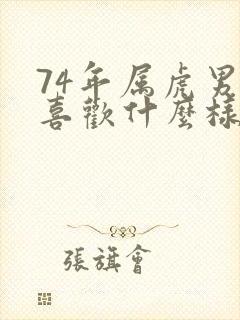 74年属虎男
喜歡什麼樣
張旗會